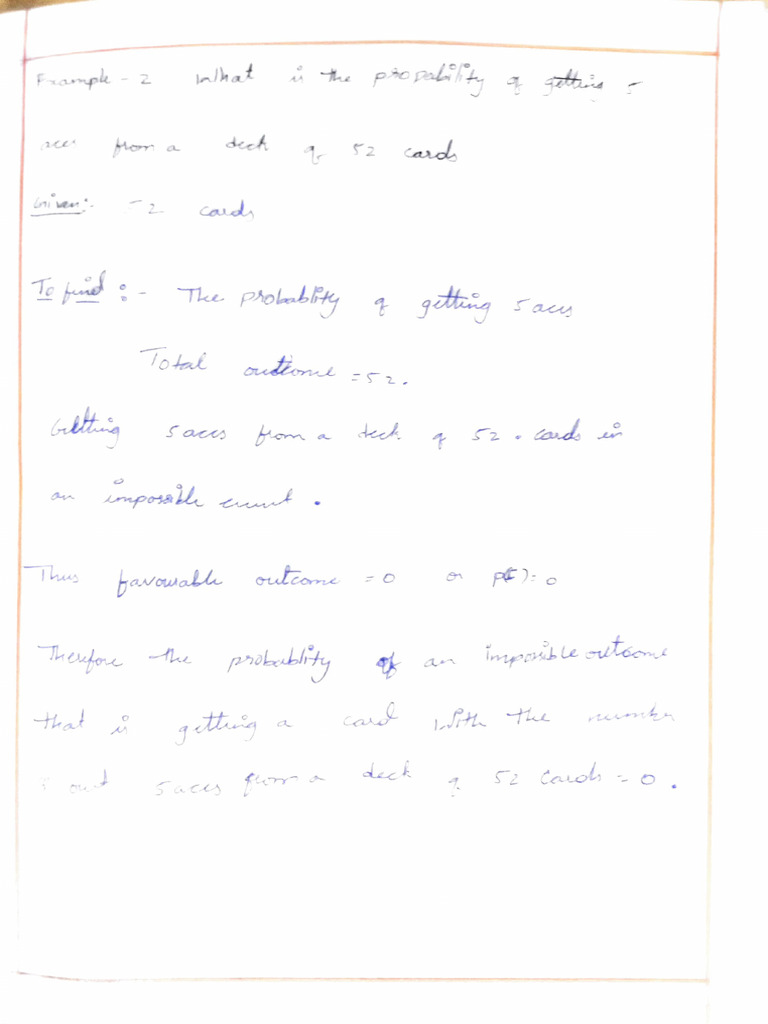 Example - 2 What is the probability of getting 5
aces from a deck of 52 cards
Given:- 52 cards
To find :- The probablity of getting 5 aces
Total outcome = 52.
Getting 5 aces from a deck of 52 . cards in
an impossible event .
Thus favourable outcome = 0 or p(E) = 0
Therefore the probablity of an impossible outcome
that is getting a card with the number
5 out 5 aces from a deck of 52 cards = 0 .